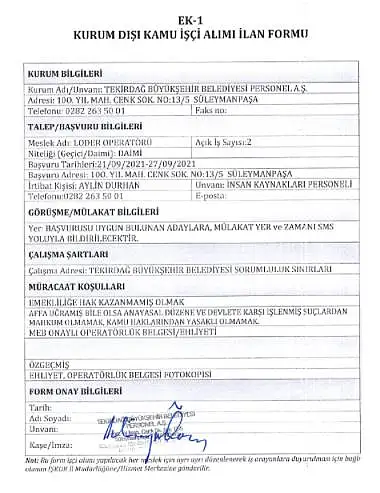 EK-1
KURUM DIŞI KAMU İŞÇİ ALIMI İLAN FORMU
KURUM BİLGİLERİ
Kurum Adı/Unvanı: TEKİRDAĞ BÜYÜKŞEHİR BELEDİYESİ PERSONEL A.Ş.
Adresi: 100. YIL MAH. CENK SOK. NO:13/5 SÜLEYMANPAŞA
Telefonu: 0282 263 50 01 Faks no:
TALEP/BAŞVURU BİLGİLERİ
Meslek Adı: LODER OPERATÖRÜ Açık İş Sayısı:2
Niteliği (Geçici/Daimi): DAİMİ
Başvuru Tarihleri:21/09/2021-27/09/2021
Başvuru Adresi: 100. YIL MAH. CENK SOK. NO:13/5 SÜLEYMANPAŞA
İrtibat Kişisi: AYLİN DURHAN Unvanı: İNSAN KAYNAKLARI PERSONELİ
Telefonu:0282 263 50 01 E-posta:
GÖRÜŞME/MÜLAKAT BİLGİLERİ
Yer: BAŞVURUSU UYGUN BULUNAN ADAYLARA, MÜLAKAT YER ve ZAMANI SMS
YOLUYLA BİLDİRİLECEKTİR.
ÇALIŞMA ŞARTLARI
Çalışma Adresi: TEKİRDAĞ BÜYÜKŞEHİR BELEDİYESİ SORUMLULUK SINIRLARI
MÜRACAAT KOŞULLARI
EMEKLİLİĞE HAK KAZANMAMIŞ OLMAK
AFFA UĞRAMIŞ BİLE OLSA ANAYASAL DÜZENE VE DEVLETE KARŞI İŞLENMİŞ SUÇLARDAN
MAHKUM OLMAMAK, KAMU HAKLARINDAN YASAKLI OLMAMAK.
MEB ONAYLI OPERATÖRLÜK BELGESİ/EHLİYETİ
ÖZGEÇMİŞ
EHLİYET, OPERATÖRLÜK BELGESİ FOTOKOPİSİ
FORM ONAY BİLGİLERİ
Tarih:
Adı Soyadı: TEKİRDAĞ BÜYÜKŞEHİR BELEDİYESİ
PERSONEL A.Ş.
Unvanı:
Kaşe/İmza:
Not: Bu form işçi alımı yapılacak her meslek için ayrı ayrı düzenlenerek iş arayanlara duyurulması için bağlı
olunan İŞKUR İl Müdürlüğüne/Hizmet Merkezine gönderilir.